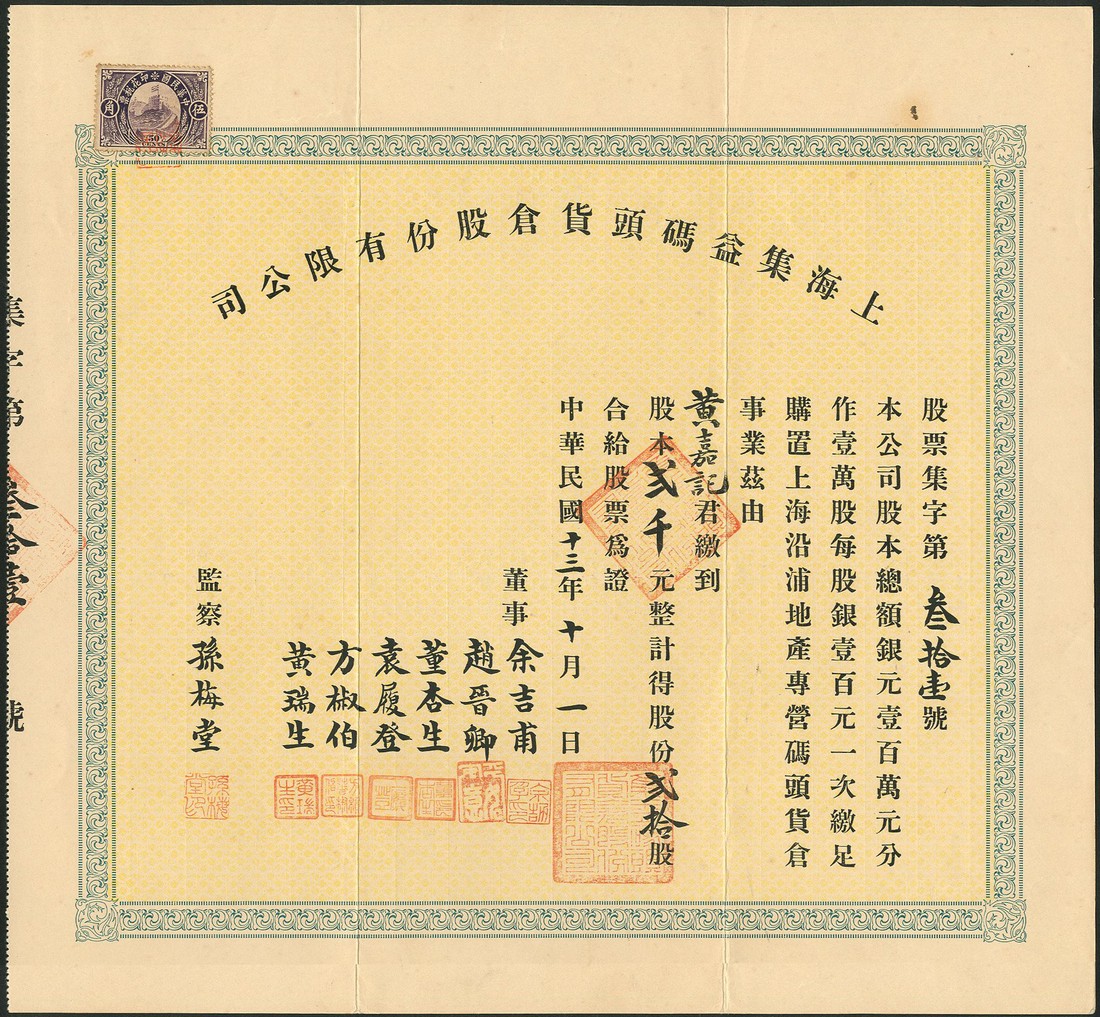 中華民國印花稅票
伍
角
50
CENTS
上海集益碼頭貨倉股份有限公司
股票集字第叁拾壹號
本公司股本總額銀元壹百萬元分
作壹萬股每股銀壹百元一次繳足
購置上海沿浦地產專營碼頭貨倉
事業茲由
黃嘉記君繳到
股本貳千元整計得股份貳拾股
合給股票爲證
中華民國十三年十月一日
董事余吉甫
趙晉卿
董杏生
袁履登
方椒伯
黃瑞生
監察孫梅堂
集字第叁拾壹號